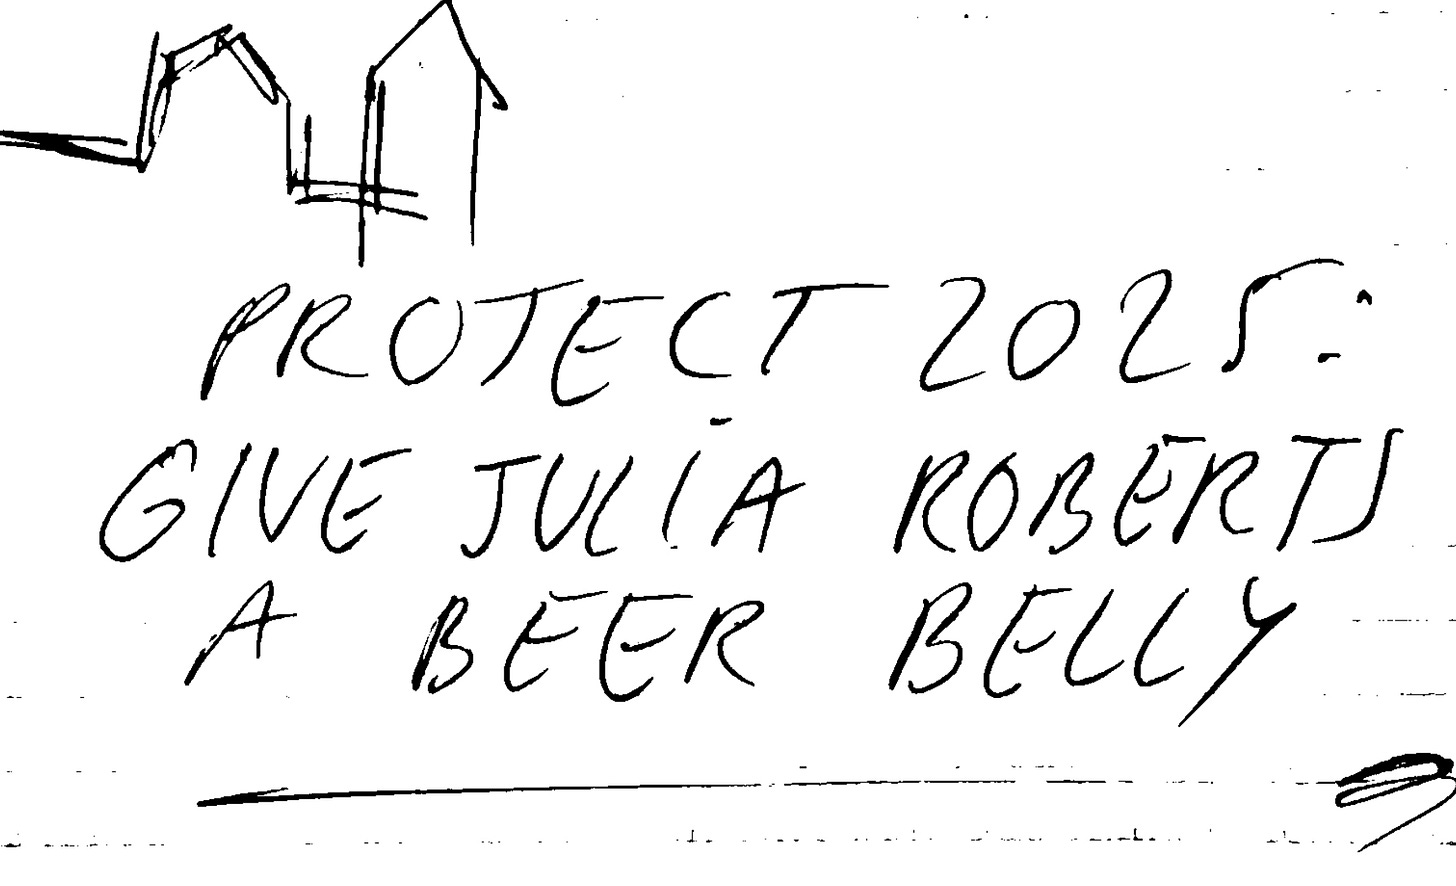 PROJECT 2025:
GIVE JULIA ROBERTS
A BEER BELLY